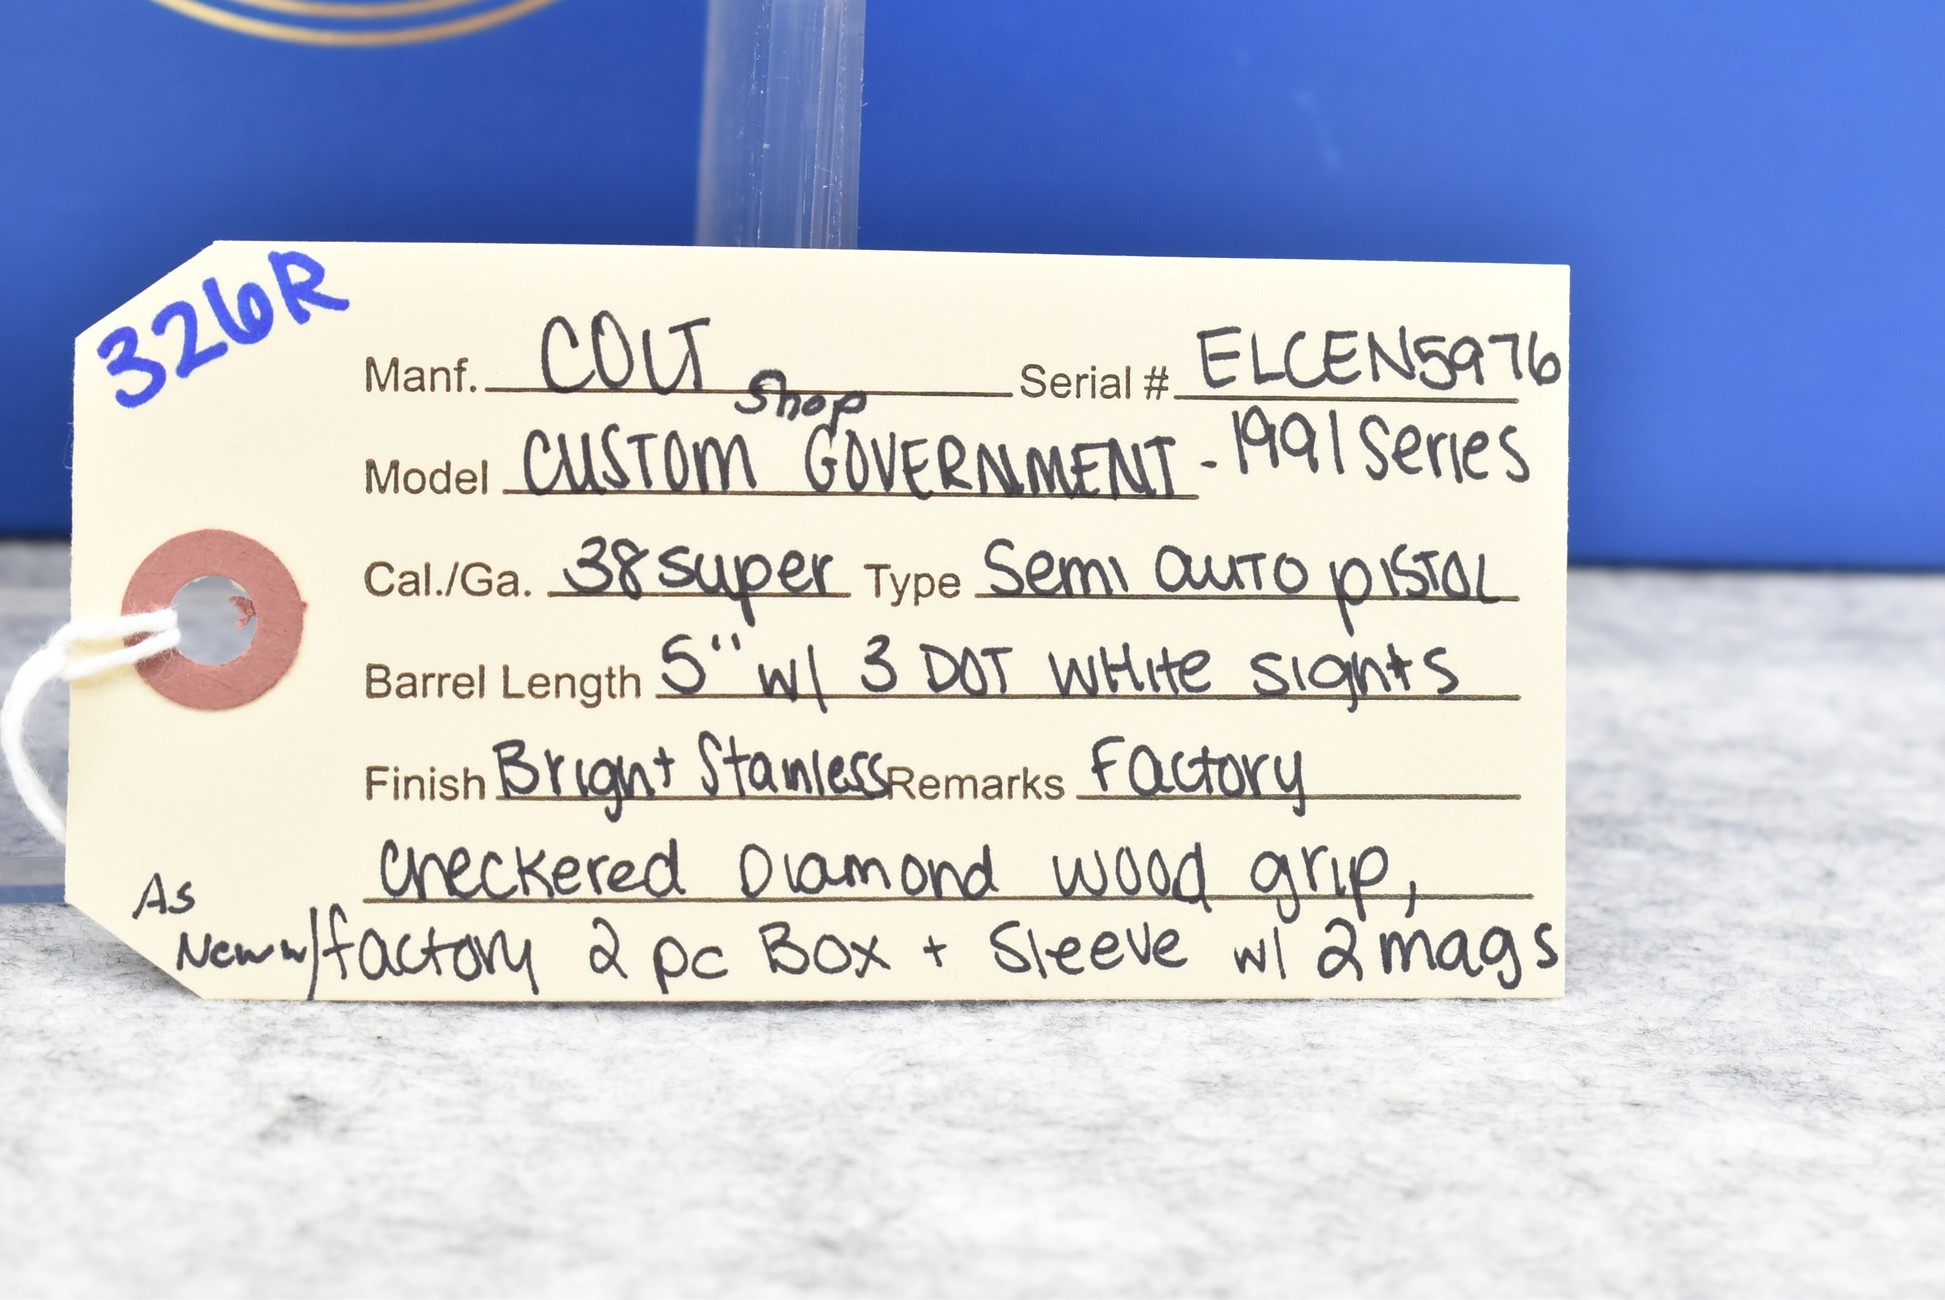 326R
Manf. COLT Serial # ELCEN5976
Shop
Model CUSTOM GOVERNMENT - 1991 Series
Cal./Ga. 38 super Type Semi auto pistol
Barrel Length 5" w/ 3 DOT white sights
Finish Bright Stainless Remarks Factory
checkered Diamond wood grip,
As
New w/ factory 2 pc Box + Sleeve w/ 2 mags